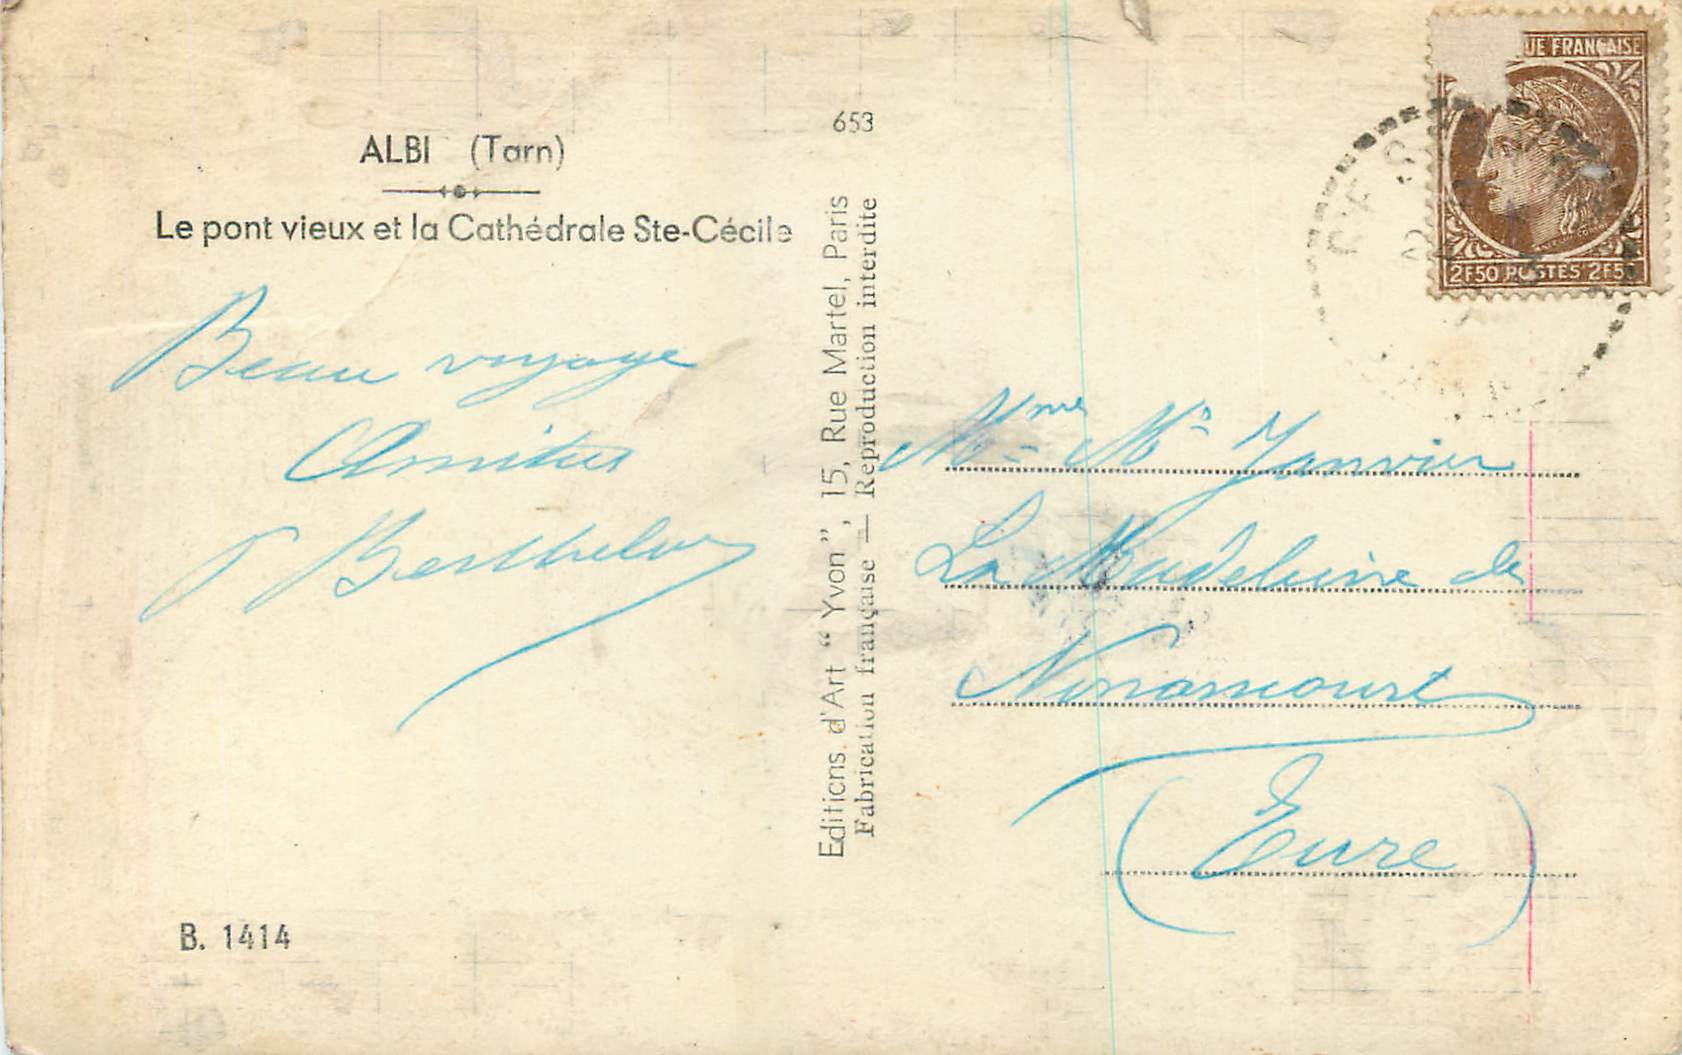 ALBI (Tarn)
Le pont vieux et la Cathédrale Ste-Cécile
Beau voyage
Amitiés
Berthelot
B. 1414
653
Editions d'Art “Yvon”, 15, Rue Martel, Paris
Fabrication française — Reproduction interdite
UE FRANÇAISE
2F50 POSTES 2F5
Mme Janvier
La Madeleine de
Nonancourt
(Eure)